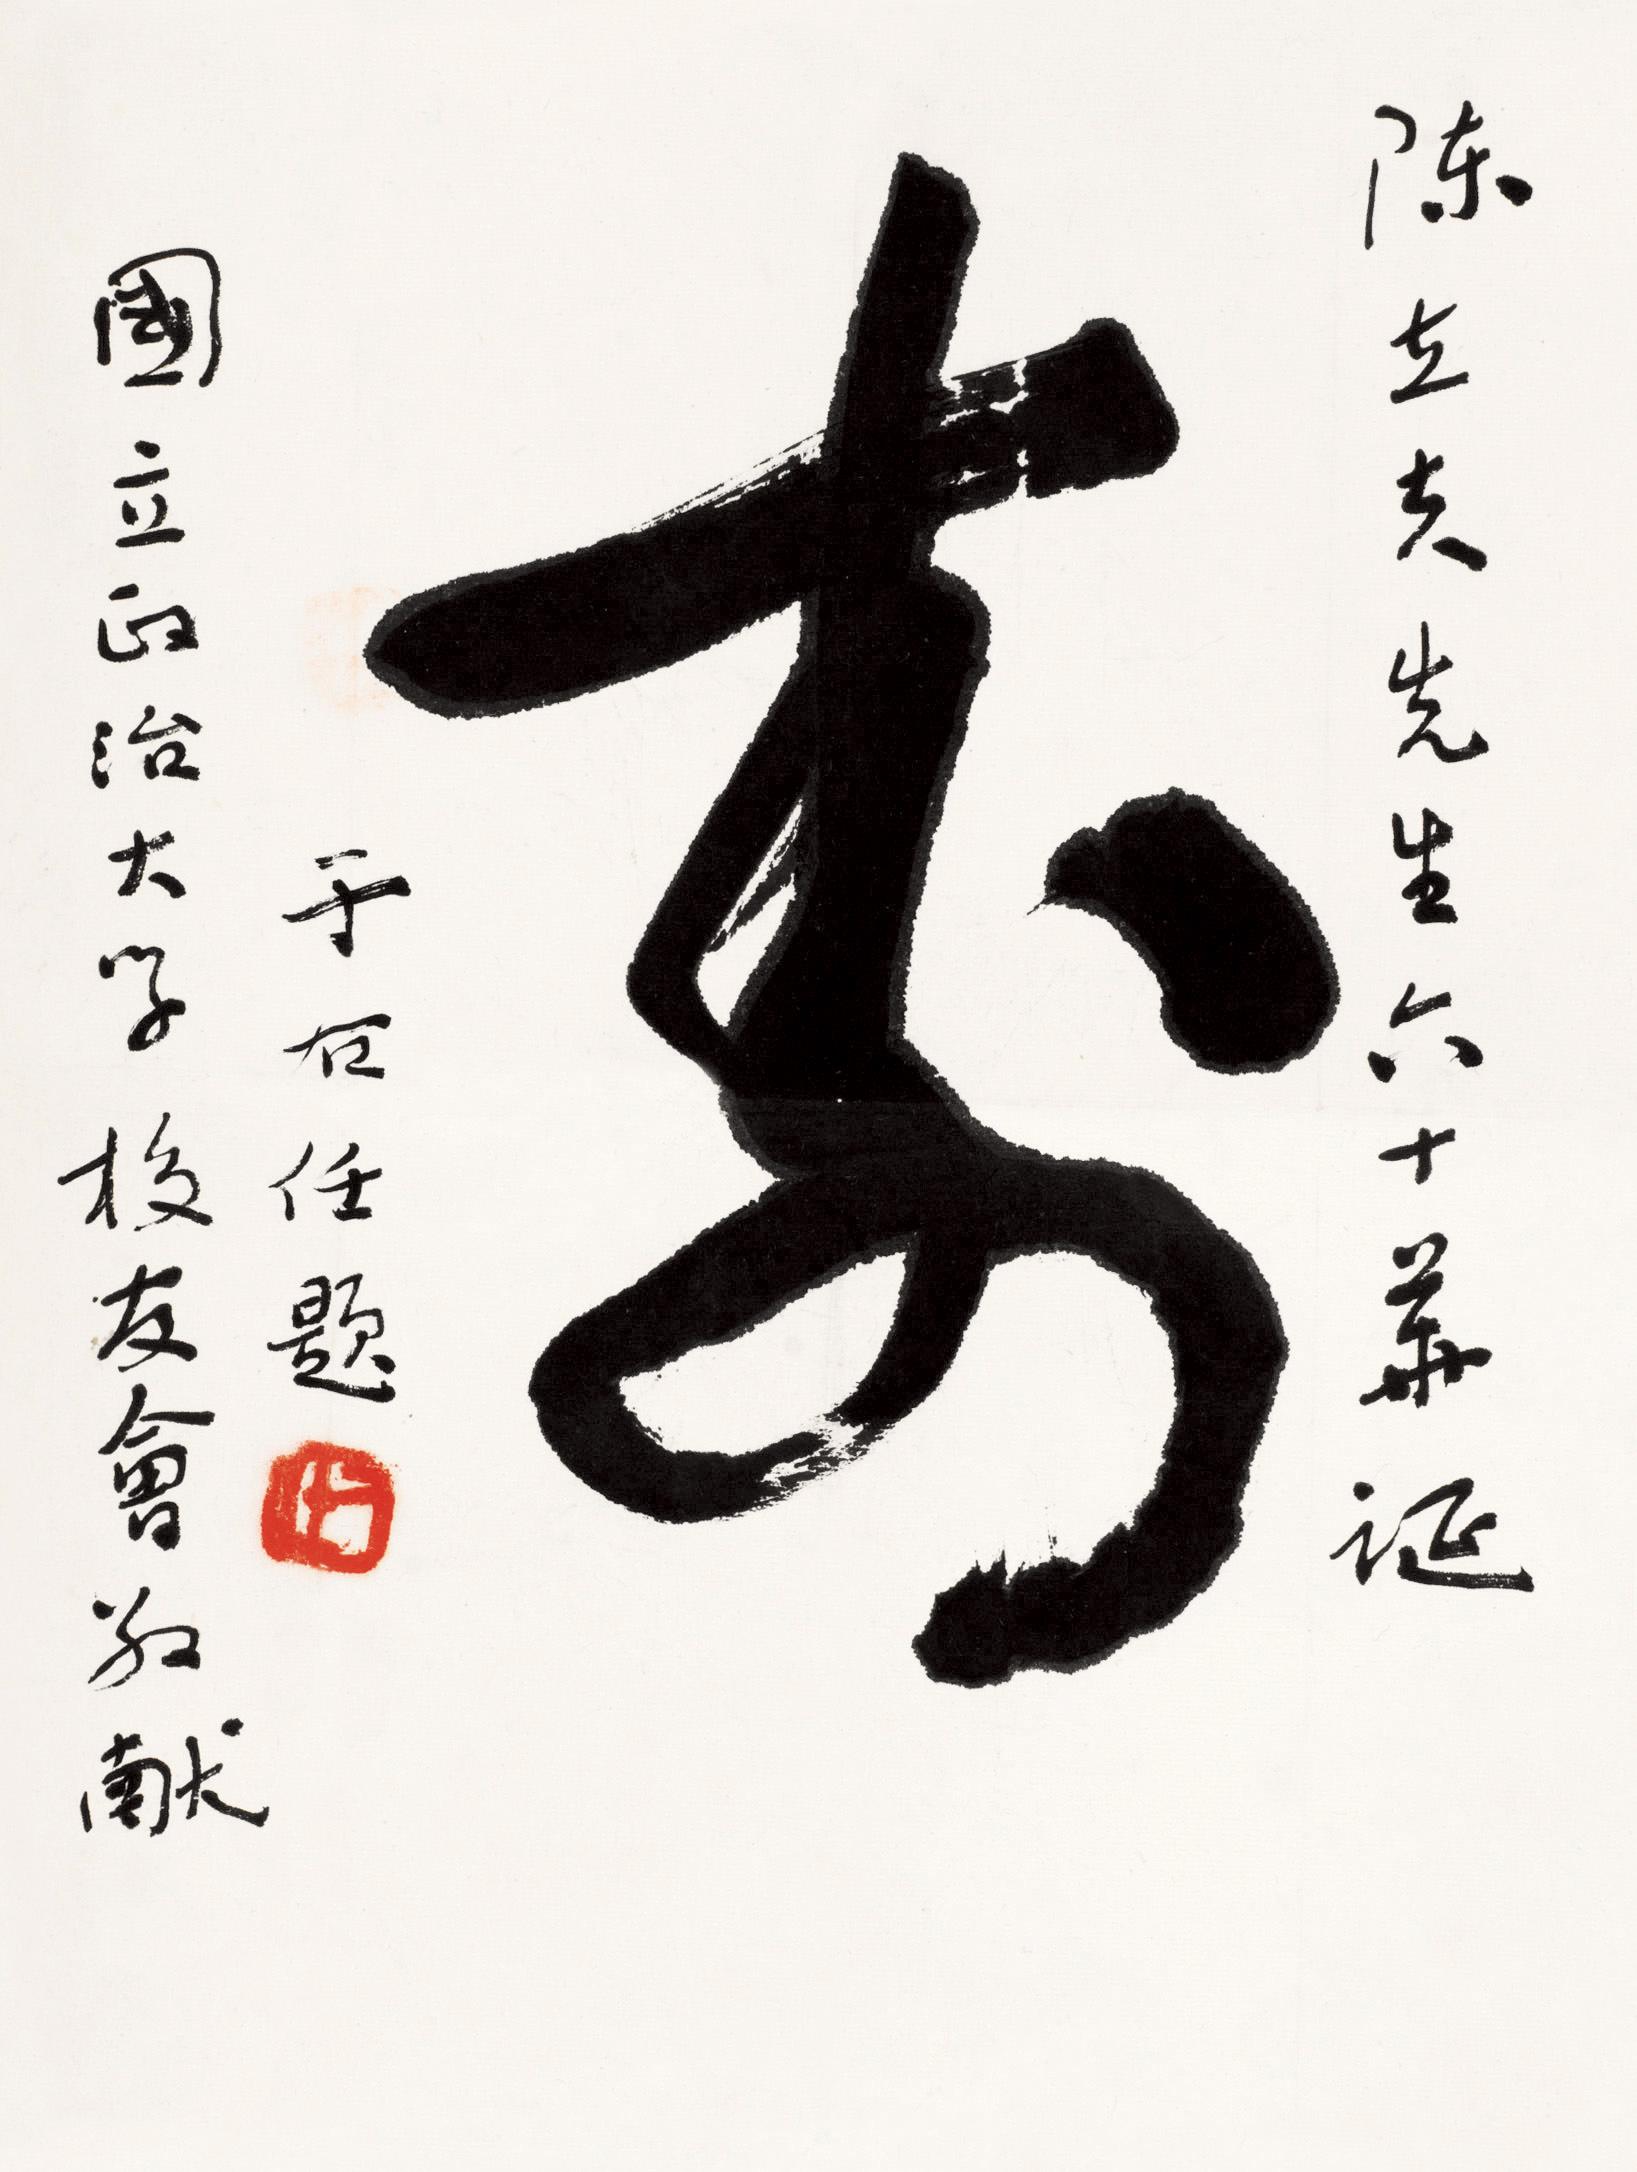 陳立夫先生六十華誕
壽
于右任題
國立政治大學校友會敬献